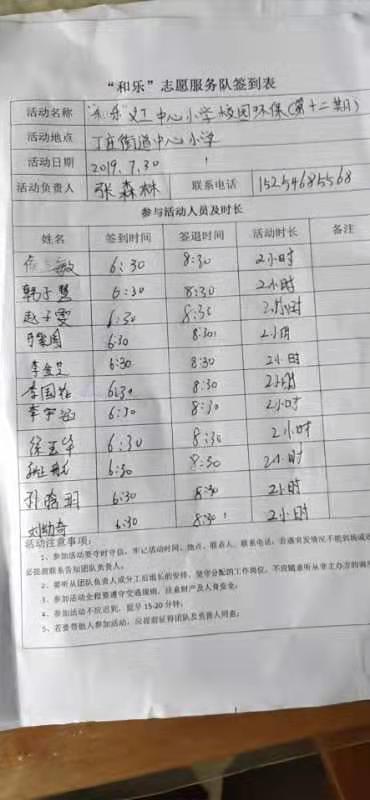 “和乐”志愿服务队签到表
活动名称 “和乐”义工中心小学校园环保(第十二期)
活动地点 丁庄街道中心小学
活动日期 2019.7.30
活动负责人 张森林 联系电话 15254685568
参与活动人员及时长
姓名 签到时间 签退时间 活动时长 备注
敏 6:30 8:30 2小时
韩子慧 6:30 8:30 2小时
赵子雯 6:30 8:30 2小时
6:30 8:30 2小时
李金芝 6:30 8:30 2小时
李国 6:30 8:30 2小时
李宇 6:30 8:30 2小时
徐玉华 6:30 8:30 2小时
6:30 8:30 2小时
孙 羽 6:30 8:30 2小时
刘 奇 6:30 8:30 2小时
活动注意事项:
1、参加活动要守时守信,牢记活动时间、地点、联系人、联系电话,若遇突发情况不能到场或迟
必提前联系告知团队负责人。
2、要听从团队负责人或分工后组长的安排,坚守分配的工作岗位,不应随意听从非主办方的调
3、参加活动全程要遵守交通规则,注意财产及人身安全;
4、参加活动不应迟到,提早 15-20 分钟;
5、若要带他人参加活动,应提前征得团队及负责人同意;